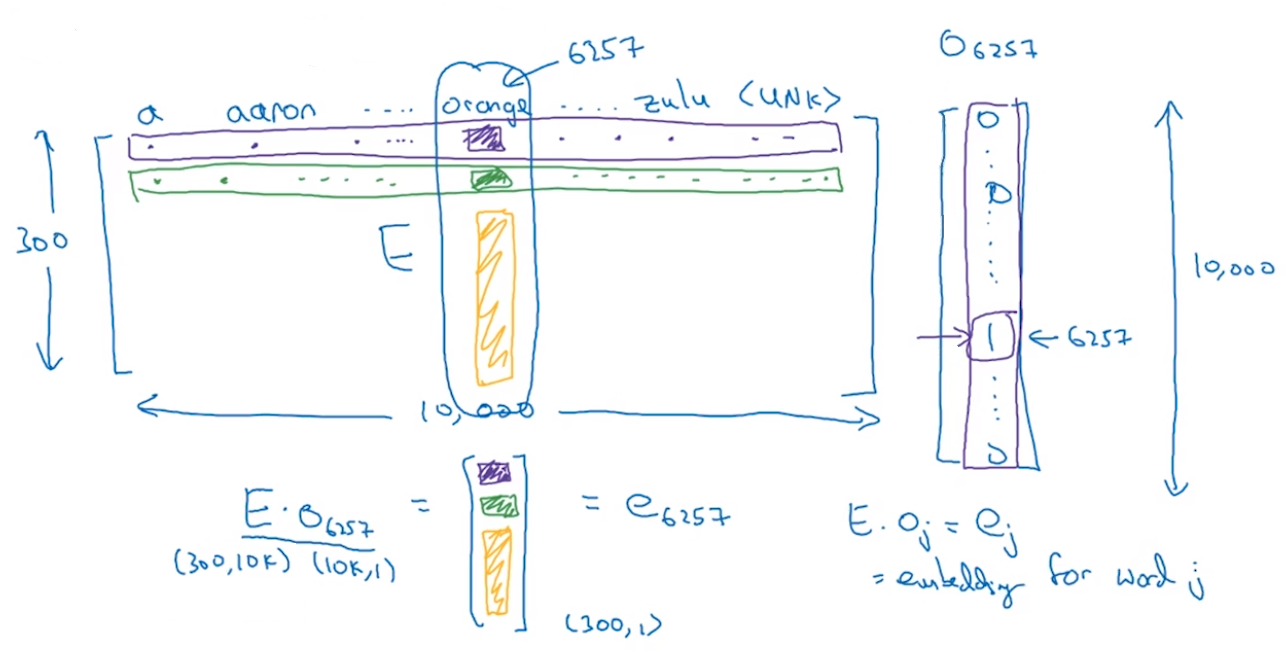 6257
O6257
a aaron ..... orange ..... zulu <UNK>
0
0
300
E
10,000
1 ← 6257
10,000
0
E · O6257 = [ ] = e6257
(300,10K) (10K,1)
(300,1)
E. Oj = ej
= embedding for word j